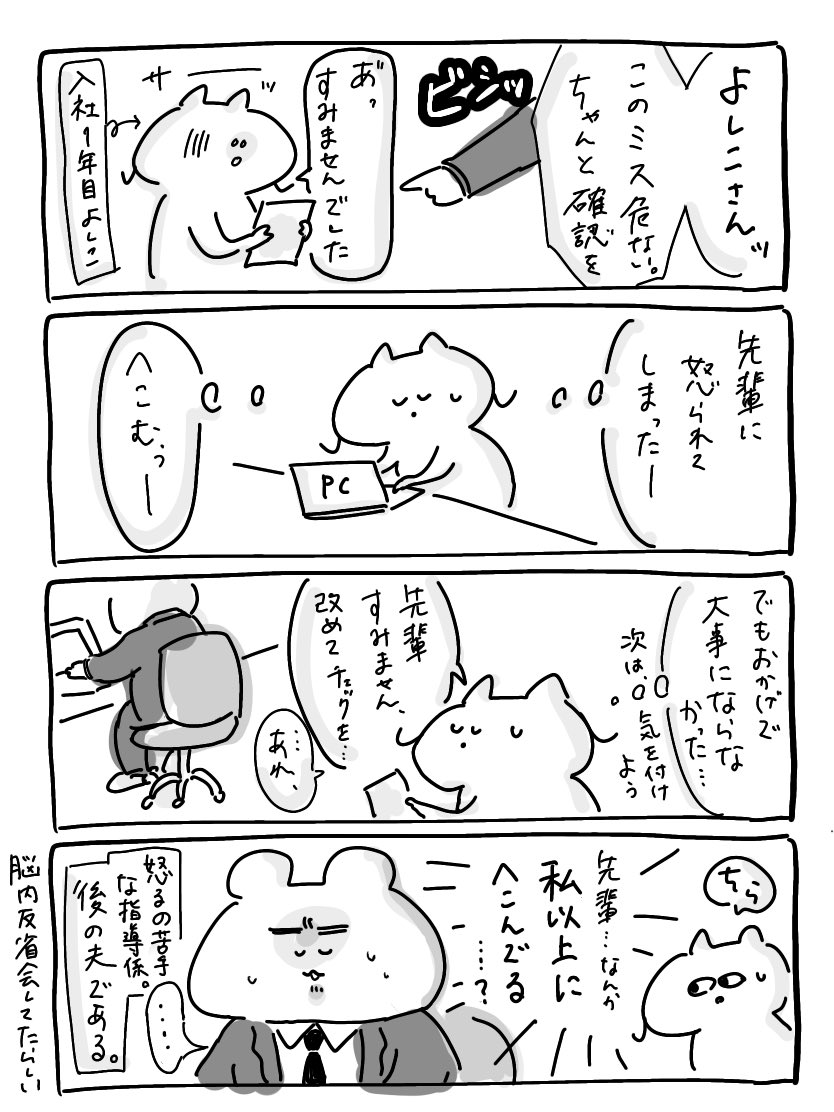 よしこさんッ
このミス危ない。
ちゃんと確認を
ビシッ
あ゛っ
すみませんでした
サーッ
入社1年目よしこ
先輩に
怒られて
しまったー
PC
へこむっー
でもおかげで
大事にならな
かった…
次は、気を付け
よう
先輩
すみません、
改めてチェックを…
…あれ、
ちら
先輩…なんか
私以上に
へこんでる
……?
‥‥
怒るの苦手
な指導係。
後の夫である。
脳内反省会してたらしい